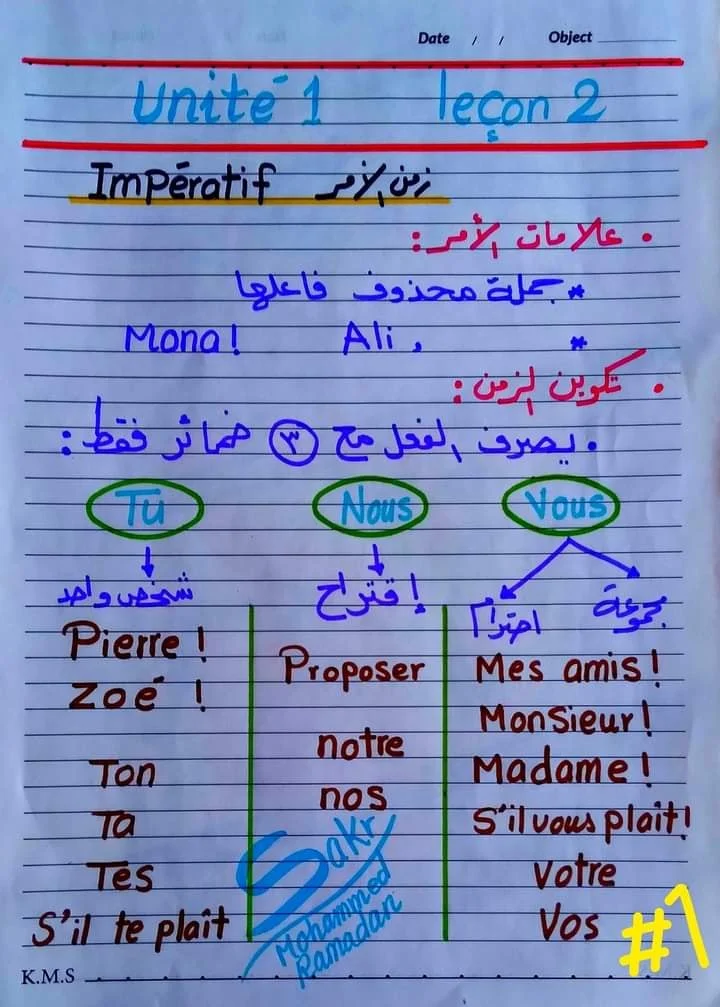 Date / / Object
Unité 1 leçon 2
Impératif زمن الأمر
• علامات الأمر:
* جملة محذوف فاعلها
* Ali, Mona!
• تكوين الزمن:
• يصرف الفعل مع ٣ ضمائر فقط:
Tu Nous Vous
شخص واحد إقتراح احترام مجموعة
Pierre !
Zoé !
Ton
Ta
Tes
S'il te plaît
Proposer
notre
nos
Mes amis !
Monsieur !
Madame !
S'il vous plaît !
Votre
Vos
Sakr
Mohammed
Ramadan
#1
K.M.S